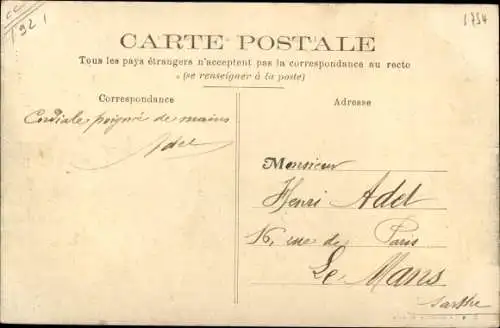 CC
1921
1734
CARTE POSTALE
Tous les pays étrangers n'acceptent pas la correspondance au recto
(se renseigner à la poste)
Correspondance
Adresse
Cordiale poignée de mains
Adet
Monsieur
Henri Adet
16, rue de Paris
Le Mans
Sarthe